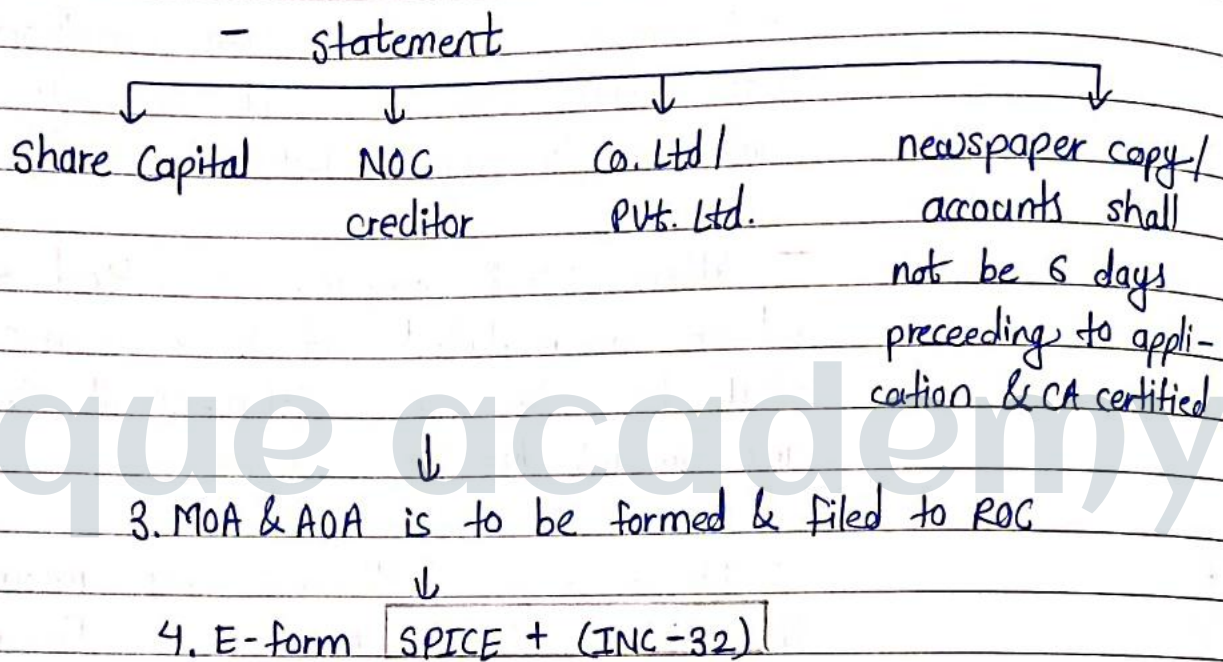 - statement
Share Capital
NOC
creditor
Co. Ltd /
PVt. Ltd.
newspaper copy /
accounts shall
not be 6 days
preceeding to appli-
cation & CA certified
que academy
3. MOA & AOA is to be formed & filed to ROC
4. E-form SPICE + (INC-32)